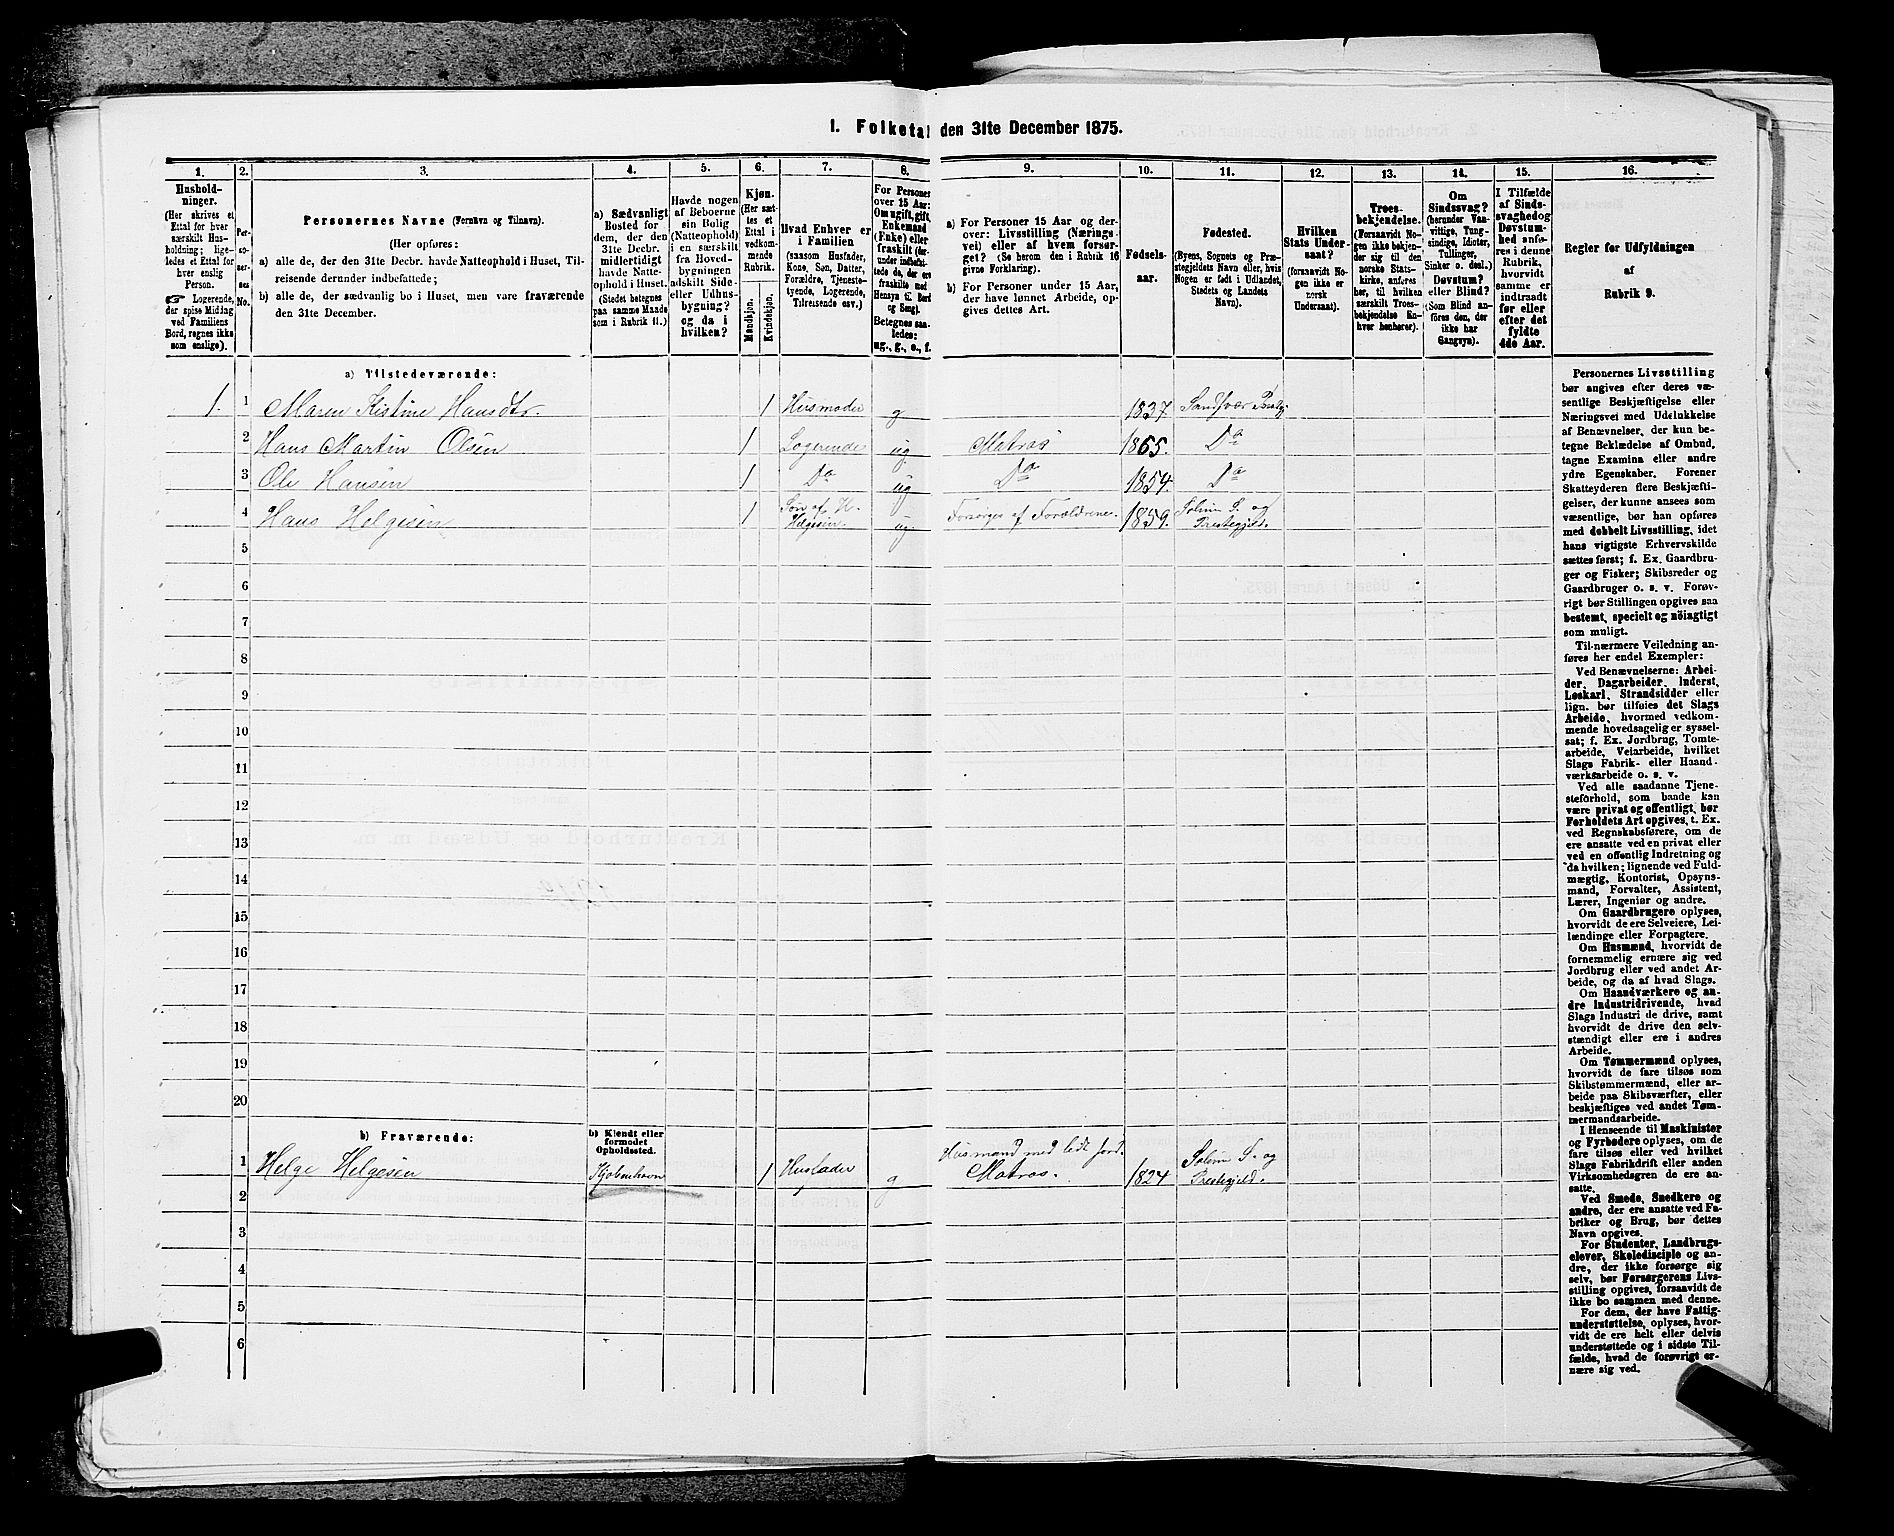 1. Folketal den 31te December 1875.
1.
2.
3.
4.
5.
6.
7.
8.
9.
10.
11.
12.
13.
14.
15.
16.
Hushold-
ninger.
(Her skrives et
Ettal for hver
særskilt Hus-
holdning; lige-
ledes et Ettal for
hver enslig
Person.
☞ Logerende,
der spise Middag
ved Familiens
Bord, regnes ikke
som enslige).
Per-
so-
ner-
nes
No.
Personernes Navne (Fornavn og Tilnavn).
(Her opføres:
a) alle de, der den 31te Decbr. havde Natteophold i Huset, Til-
reisende derunder indbefattede;
b) alle de, der sædvanlig bo i Huset, men vare fraværende
den 31te December.
a) Sædvanligt
Bosted for
dem, der den
31te Decbr.
midlertidigt
havde Natte-
ophold i Huset.
(Stedet betegnes
paa samme Maade
som i Rubrik 11.)
Havde nogen
af Beboerne
sin Bolig
(Natteophold)
i en særskilt
fra Hoved-
bygningen
adskilt Side-
eller Udhus-
bygning?
og da i
hvilken?
Kjøn.
(Her sæt-
tes et
Ettal i
vedkom-
mende
Rubrik.
Mandkjøn.
Kvindekjøn.
Hvad Enhver er
i Familien
(saasom Husfader,
Kone, Søn, Datter,
Forældre, Tjeneste-
tyende, Logerende,
Tilreisende osv.)
For Personer
over 15 Aar:
Om ugift, gift,
Enkemand
(Enke) eller
fraskilt (her-
under indbefat-
tede de, der ere
fraskilte med
Hensyn til Bord
og Seng).
Betegnes saa-
ledes:
ug., g., e., f.
a) For Personer 15 Aar og der-
over: Livsstilling (Nærings-
vei) eller af hvem forsør-
get? (Se herom den i Rubrik 16
givne Forklaring).
b) For Personer under 15 Aar,
der have lønnet Arbeide, op-
gives dettes Art.
Fødsels-
aar.
Fødested.
(Byens, Sognets og Præ-
stegjeldets Navn eller, hvis
Nogen er født i Udlandet,
Stedets og Landets
Navn).
Hvilken
Stats Under-
saat?
(forsaavidt No-
gen ikke er
norsk
Undersaat).
Troes-
bekjendelse.
(Forsaavidt No-
gen ikke bekjen-
der sig til den
norske Stats-
kirke, anføres
her, til hvilken
særskilt Troes-
bekjendelse En-
hver henhører).
Om
Sindssvag?
(herunder Van-
vittige, Tung-
sindige, Idioter,
Tullinger,
Sinker o. desl.)
Døvstum?
eller Blind?
(Som Blind an-
føres den, der
ikke har
Gangsyn).
I Tilfælde
af Sinds-
svaghed og
Døvstum-
hed anfø-
res i denne
Rubrik,
hvorvidt
samme er
indtraadt
før eller
efter det
fyldte
4de Aar.
Regler for Udfyldningen
af
Rubrik 9.
a) Tilstedeværende:
1. 1 Maren Kistine Hansdtr. 1 Husmoder g 1837. Sandsvær Prestg.
2 Hans Martin Olsen 1 Logerende ug. Matros 1865. Do
3 Ole Hansen 1 Do ug Do 1854. Do
4 Hans Helgesen 1 Søn af H. Helgesen. ug. Forsørges af Forældrene. 1859. Solum S. og Prestegjeld.
5
6
7
8
9
10
11
12
13
14
15
16
17
18
19
20
b) Fraværende:
b) Kjendt eller
formodet
Opholdssted.
1 Helge Helgesen Kjøbenhavn 1 Husfader g Husmand med lidt jord. Matros. 1824 Solum S. og Prestegjeld.
2
3
4
5
6
Personernes Livsstilling
bør angives efter deres væ-
sentlige Beskjæftigelse eller
Næringsvei med Udelukkelse
af Benævnelser, der kun be-
tegne Beklædelse af Ombud,
tagne Examina eller andre
ydre Egenskaber. Forener
Skatteyderen flere Beskjæfti-
gelser, der kunne ansees som
væsentlige, bør han opføres
med dobbelt Livsstilling, idet
hans vigtigste Erhvervskilde
sættes først; f. Ex. Gaardbru-
ger og Fisker; Skibsreder og
Gaardbruger o. s. v. Forøv-
rigt bør Stillingen opgives saa
bestemt, specielt og nöiagtigt
som muligt.
Til nærmere Veiledning an-
føres her endel Exempler:
Ved Benævnelserne: Arbei-
der, Dagarbeider, Inderst,
Løskarl, Strandsidder eller
lign. bør tilføies det Slags
Arbeide, hvormed vedkom-
mende hovedsagelig er syssel-
sat; f. Ex. Jordbrug, Tomte-
arbeide, Veiarbeide, hvilket
Slags Fabrik- eller Haand-
værksarbeide o. s. v.
Ved alle saadanne Tjene-
steforhold, som baade kan
være privat og offentligt, bør
Forholdets Art opgives, t. Ex.
ved Regnskabsførere, om de
ere ansatte ved en privat eller
ved en offentlig Indretning og
da hvilken; lignende ved Fuld-
mægtig, Kontorist, Opsyns-
mand, Forvalter, Assistent,
Lærer, Ingeniør og andre.
Om Gaardbrugere oplyses,
hvorvidt de ere Selveiere, Lei-
lændinge eller Forpagtere.
Om Husmænd, hvorvidt de
fornemmelig ernære sig ved
Jordbrug eller ved andet Ar-
beide, og da af hvad Slags.
Om Haandværkere og an-
dre Industridrivende, hvad
Slags Industri de drive, samt
hvorvidt de drive den selv-
stændigt eller ere i andres
Arbeide.
Om Tømmermænd oplyses,
hvorvidt de fare tilsøs som
Skibstømmermænd, eller ar-
beide paa Skibsværfter, eller
beskjæftiges ved andet Tøm-
mermandsarbeide.
I Henseende til Maskinister
og Fyrbødere oplyses, om de
fare tilsøs eller ved hvilket
Slags Fabrikdrift eller anden
Virksomhedsgren de ere an-
satte.
Ved Smede, Snedkere og
andre, der ere ansatte ved Fa-
briker og Brug, bør dettes
Navn opgives.
For Studenter, Landbrugs-
elever, Skoledisciple og an-
dre, der ikke forsørge sig
selv, bør Forsørgerens Livs-
stilling opgives, forsaavidt de
ikke bo sammen med denne.
For dem, der have Fattig-
understøttelse, oplyses, hvor-
vidt de ere helt eller delvis
understøttede og i sidste Til-
fælde, hvad de forøvrigt er-
nære sig ved.